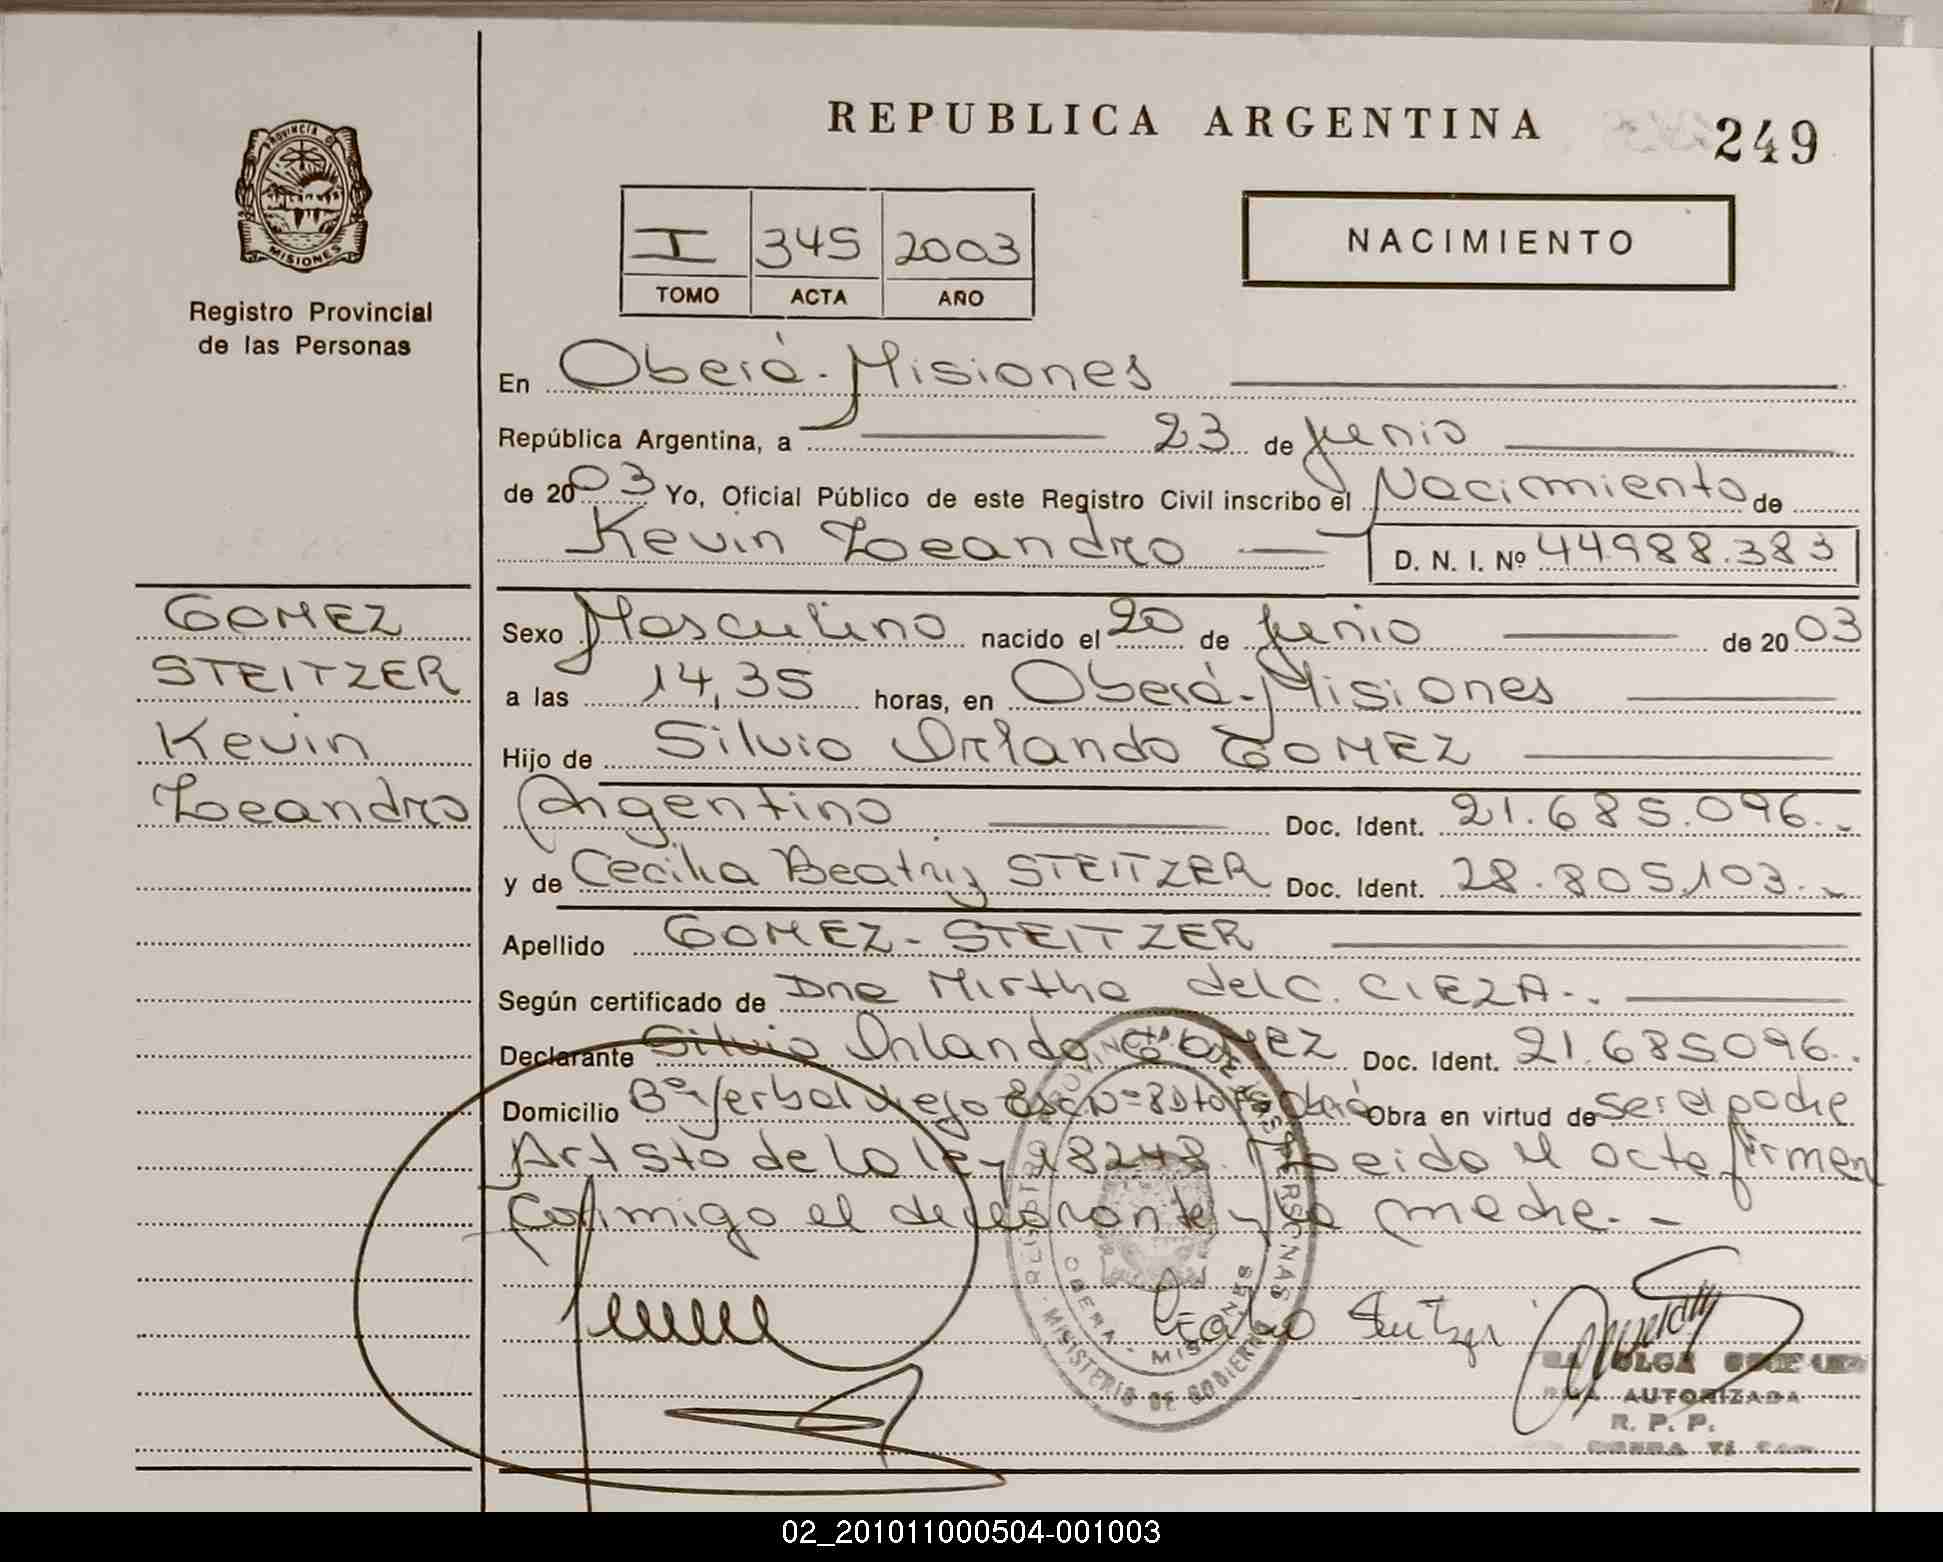 REPUBLICA ARGENTINA
249
PROVINCIA DE
MISIONES
Registro Provincial
de las Personas
I 345 2003
TOMO ACTA AÑO
NACIMIENTO
En Oberá - Misiones
República Argentina, a 23 de junio
de 2003 Yo, Oficial Público de este Registro Civil inscribo el Nacimiento de
Kevin Leandro D. N. I. Nº 44988.383
GOMEZ
STEITZER
Kevin
Leandro
Sexo Masculino nacido el 20 de junio de 2003
a las 14,35 horas, en Oberá - Misiones
Hijo de Silvio Orlando GOMEZ
Argentino Doc. Ident. 21.685.096.-
y de Cecilia Beatriz STEITZER Doc. Ident. 28.805.103.-
Apellido GOMEZ - STEITZER
Según certificado de Dna Mirtha del C. CIEZA-.
Declarante Silvio Orlando GOMEZ Doc. Ident. 21.685096..
Domicilio Bº Yerbal Viejo Esc Nº 8 Dto Oberá Obra en virtud de ser el padre
Art 5to de la ley 18248. Leido el acta firman
conmigo el declarante y la madre. -
MINISTERIO DE GOBIERNO
OBERA - MISIONES
OLGA
AUTORIZADA
R. P. P.
02_201011000504-001003